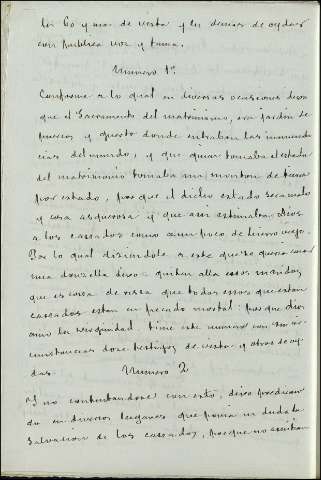 los 60 y mas de vista y los demas de oydas
con publica voz y fama.
Numero 1º
Conforme a lo qual en diversas ocasiones decia
que el Sacramento del matrimonio, era jardin de
puercos y puerto donde entraban las inmundi
cias del mundo, y que quien tomaba el estado
del matrimonio tomaba un monton de tierra
por estado, porque el dicho estado era malo
y cosa asquerosa y que asi estimaba Dios
a los casados como a un poco de hierro viejo.
Por lo qual diziendole a este que se queria casar
una donzella dixo: quiten alla esos maridos,
que es cosa de risa que todos esos que estan
casados estan en pecado mortal: porque dios
amo la verginidad. tiene este numero con sus cir
cunstancias doze testigos de vista y otros de oy
das. Numero 2
Y no contentandose con esto, dixo predican
do en diversos lugares que ponia en duda la
salvacion de los casados, porque no